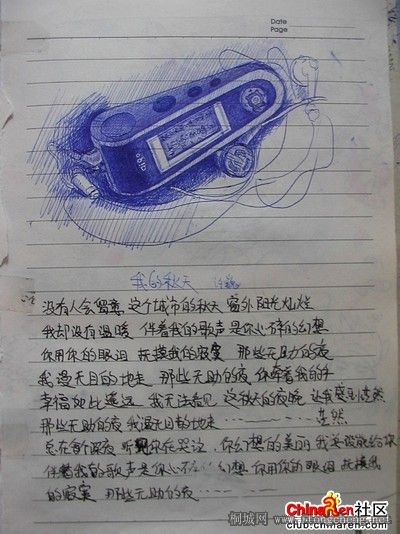 Date
Page
aigo
我的秋天 许巍
没有人会留意 这个城市的秋天 窗外阳光灿烂
我却没有温暖 伴着我的歌声 是你心碎的幻想
你用你的眼泪 抚摸我的寂寞 那些无助的夜
我漫无目的地走 那些无助的夜 你牵着我的手
幸福如此遥远 我无法看见 这秋天的夜晚 让我感到茫然
那些无助的夜 我漫无目的地走
茫然
总在每个深夜 听见你在哭泣 你幻想的美丽 我
伴着我的歌声 是你心碎 幻想 你用你的眼泪 抚摸我
的寂寞 那些无助的夜
ChinaRen社区
club.chinaren.com
桐城网
itongcheng.net